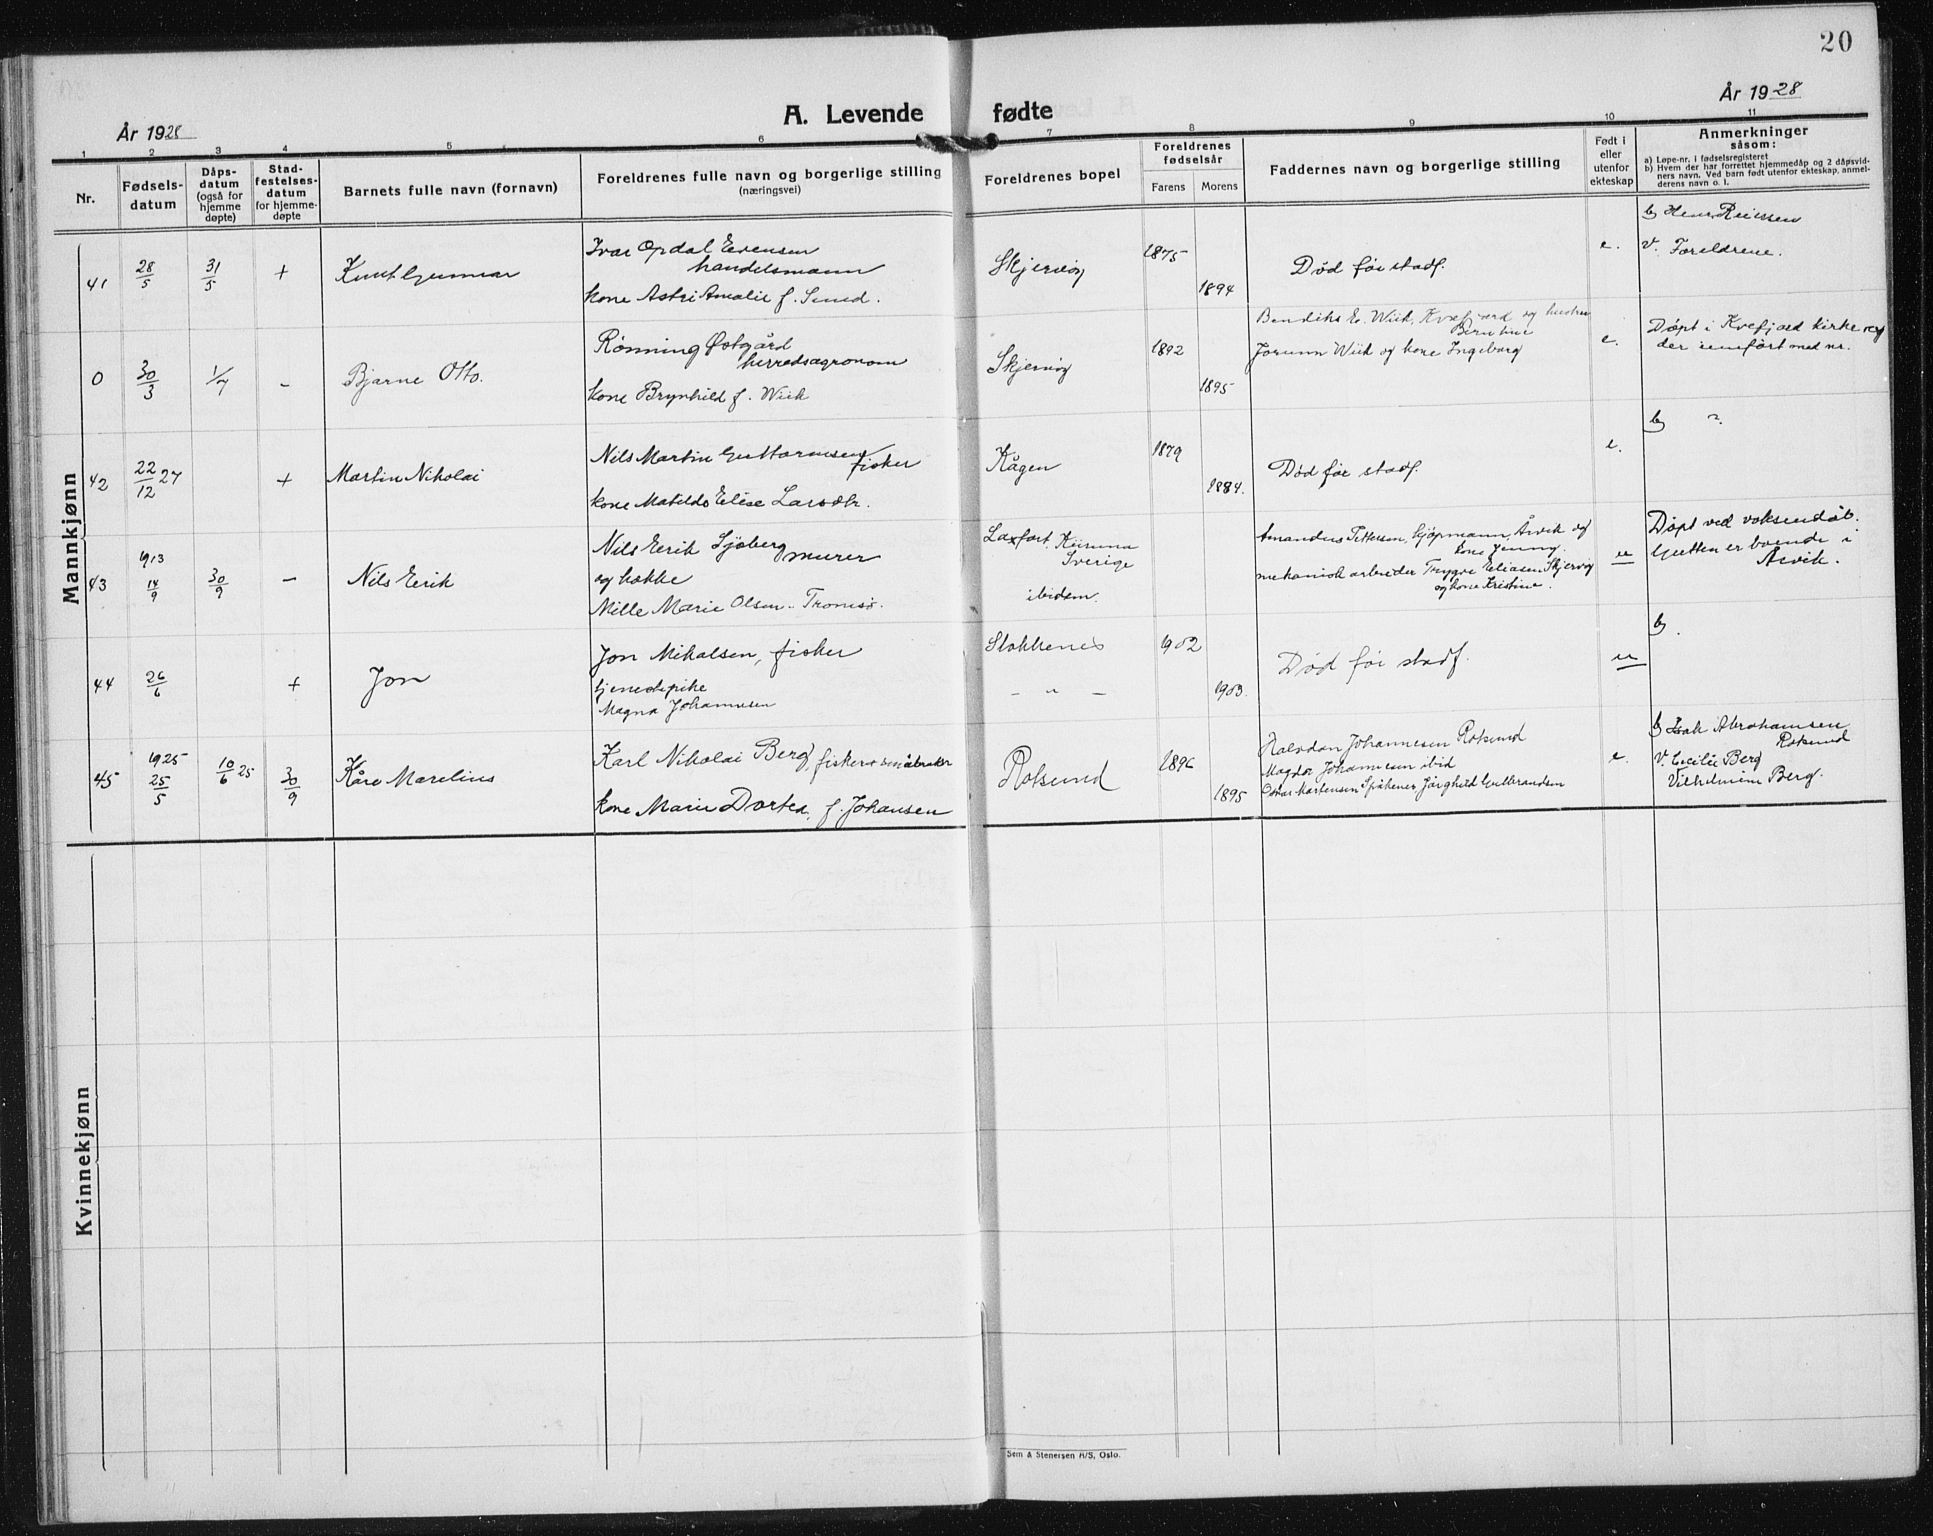 20
År 1928
A. Levende fødte
År 1928
1 2 3 4 5 6 7 8 9 10 11
Nr.
Fødsels-
datum
Dåps-
datum
(også for
hjemme
døpte)
Stad-
festelses-
datum
for hjemme-
døpte
Barnets fulle navn (fornavn)
Foreldrenes fulle navn og borgerlige stilling
(næringsvei)
Foreldrenes bopel
Foreldrenes
fødselsår
Farens Morens
Faddernes navn og borgerlige stilling
Født i
eller
utenfor
ekteskap
Anmerkninger
såsom:
a) Løpe-nr. i fødselsregisteret
b) Hvem der har forrettet hjemmedåp og 2 dåpsvid-
ners navn. Ved barn født utenfor ekteskap, anmel-
derens navn o. l.
Mannkjønn
41 28/5 31/5 + Knut Gunnar
Ivar Opdal Evensen
handelsmann
kone Astri Amalie f. Smed.
Skjervøy
1875
1894
Død før stadf.
e.
b Henr.
V. Foreldrene.
0 30/3 1/7 - Bjarne Otto.
Rønning Østgård
herredsagronom
kone Brynhild f. Wiik
Skjervøy
1892
1895
Bendiks E. Wiik, Kvefjord og hustru
Berntine
Jorunn Wiik og kone Ingeborg
e.
Døpt i Kvefjord kirke og
der innført med nr.
42 22/12 27 + Martin Nikolai
Nils Martin Guttormsen
fisker
kone Matilde Elise Larsdtr.
Kågen
1879
1884.
Død før stadf.
e.
b "
43 1913 14/9 30/9 - Nils Eerik
Nils Eerik Sjøberg murer
og kokke
Mille Marie Olsen - Tromsø.
Laxfort, Kiiruna
Sverige
ibidem.
Amandus Pettersen, kjøpmann, Årvik og
kone Jenny.
mekanisk arbeider Trygve Eliasen Skjervøy
og kone Kristine.
u
Døpt ved voksendåb.
Gutten er boende i
Årvik.
44 26/6 + Jon
Jon Mikalsen, fisker
tjenestepike
Magna Johannesen
Stokkenes
- " -
1902
1903.
Død før stadf.
u
b.
45 1925 25/5 10/6 25 30/9 Kåre Marelius
Karl Nikolai Berg, fisker o småbruker
kone Marie Dortea, f. Johansen
Rotsund
1896
1895
Halvdan Johannesen Rotsund
Magda Johannesen ibid
Oskar Mortensen Spåkenes Jørghild Guttbrandsen
e.
b Isak Abrahamsen
Rotsund
V. Cecilie Berg
Vilhelmine Berg.
Kvinnekjønn
Sem & Stenersen A/S, Oslo.